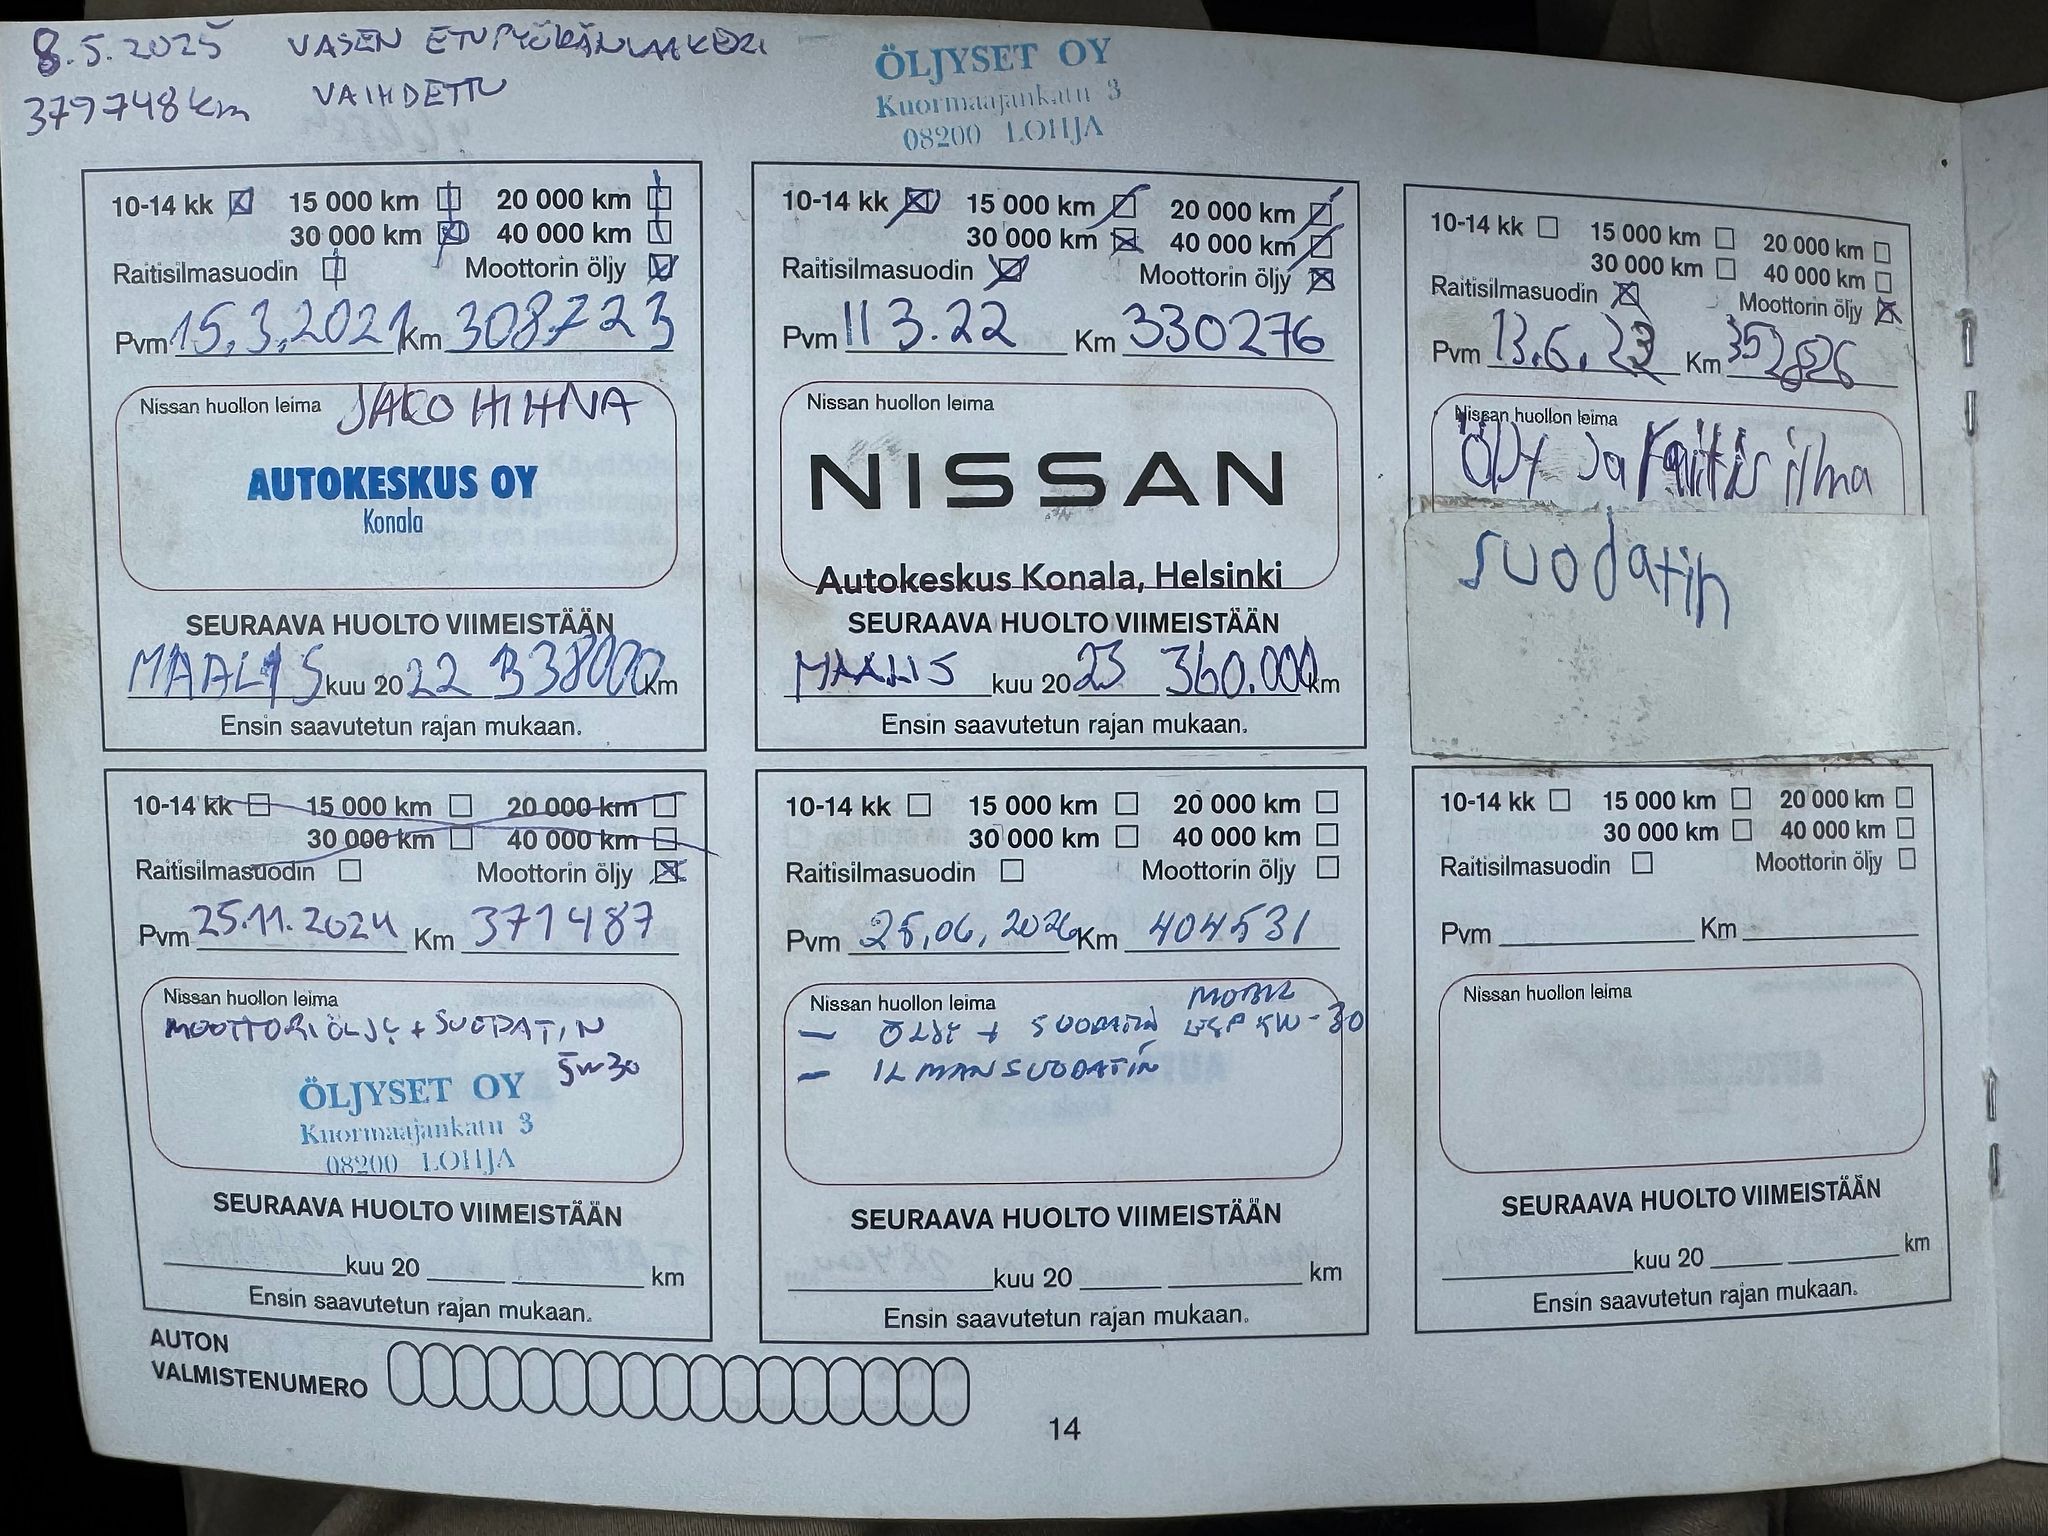 8.5.2025 VASEN ETUPYÖRÄNLAAKERI
379748km VAIHDETTU
ÖLJYSET OY
Kuormaajankatu 3
08200 LOHJA
10-14 kk 15 000 km 20 000 km
30 000 km 40 000 km
Raitisilmasuodin Moottorin öljy
Pvm 15.3.2021 Km 308723
Nissan huollon leima JAKOHIHNA
AUTOKESKUS OY
Konala
SEURAAVA HUOLTO VIIMEISTÄÄN
MAALIS kuu 2022 338000 km
Ensin saavutetun rajan mukaan.
10-14 kk 15 000 km 20 000 km
30 000 km 40 000 km
Raitisilmasuodin Moottorin öljy
Pvm 11 3.22 Km 330276
Nissan huollon leima
NISSAN
Autokeskus Konala, Helsinki
SEURAAVA HUOLTO VIIMEISTÄÄN
MAALIS kuu 2023 360.000 km
Ensin saavutetun rajan mukaan.
10-14 kk 15 000 km 20 000 km
30 000 km 40 000 km
Raitisilmasuodin Moottorin öljy
Pvm 13.6.23 Km 352826
Nissan huollon leima
ja Raitis ilma
suodatin
10-14 kk 15 000 km 20 000 km
30 000 km 40 000 km
Raitisilmasuodin Moottorin öljy
Pvm 25.11.2024 Km 371487
Nissan huollon leima
MOOTTORIÖLJY + SUODATIN
5W30
ÖLJYSET OY
Kuormaajankatu 3
08200 LOHJA
SEURAAVA HUOLTO VIIMEISTÄÄN
kuu 20 km
Ensin saavutetun rajan mukaan.
10-14 kk 15 000 km 20 000 km
30 000 km 40 000 km
Raitisilmasuodin Moottorin öljy
Pvm 25.06.2026 Km 404531
Nissan huollon leima MOBIL
- ÖLJY + SUODATIN ESP 5W-30
- ILMANSUODATIN
SEURAAVA HUOLTO VIIMEISTÄÄN
kuu 20 km
Ensin saavutetun rajan mukaan.
10-14 kk 15 000 km 20 000 km
30 000 km 40 000 km
Raitisilmasuodin Moottorin öljy
Pvm Km
Nissan huollon leima
SEURAAVA HUOLTO VIIMEISTÄÄN
kuu 20 km
Ensin saavutetun rajan mukaan.
AUTON
VALMISTENUMERO
14